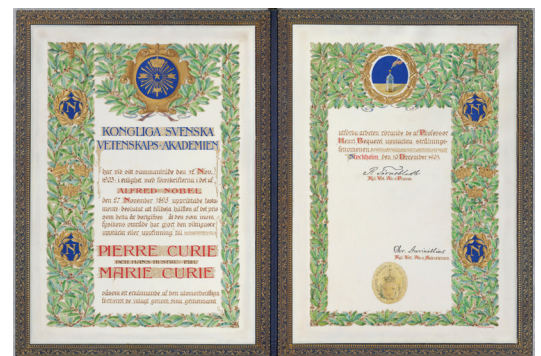 KONGLIGA SVENSKA
VETENSKAPS-AKADEMIEN
har vid sitt sammanträde den 12 Nov.
1903 i enlighet med föreskrifterna i det af
ALFRED NOBEL
den 27 November 1895 upprättade testa-
mente beslutat att tilldela hälften af det pris
som detta år bortgifves åt den som inom
fysikens område har gjort den viktigaste
upptäckt eller uppfinning till
PIERRE CURIE
OCH HANS HUSTRU FRU
MARIE CURIE
såsom ett erkännande af den utomordentliga
förtjenst de inlagt genom sina gemensamt
utförda arbeten rörande de af Professor
Henri Becquerel upptäckta strålnings-
fenomenen
Stockholm den 10 December 1903